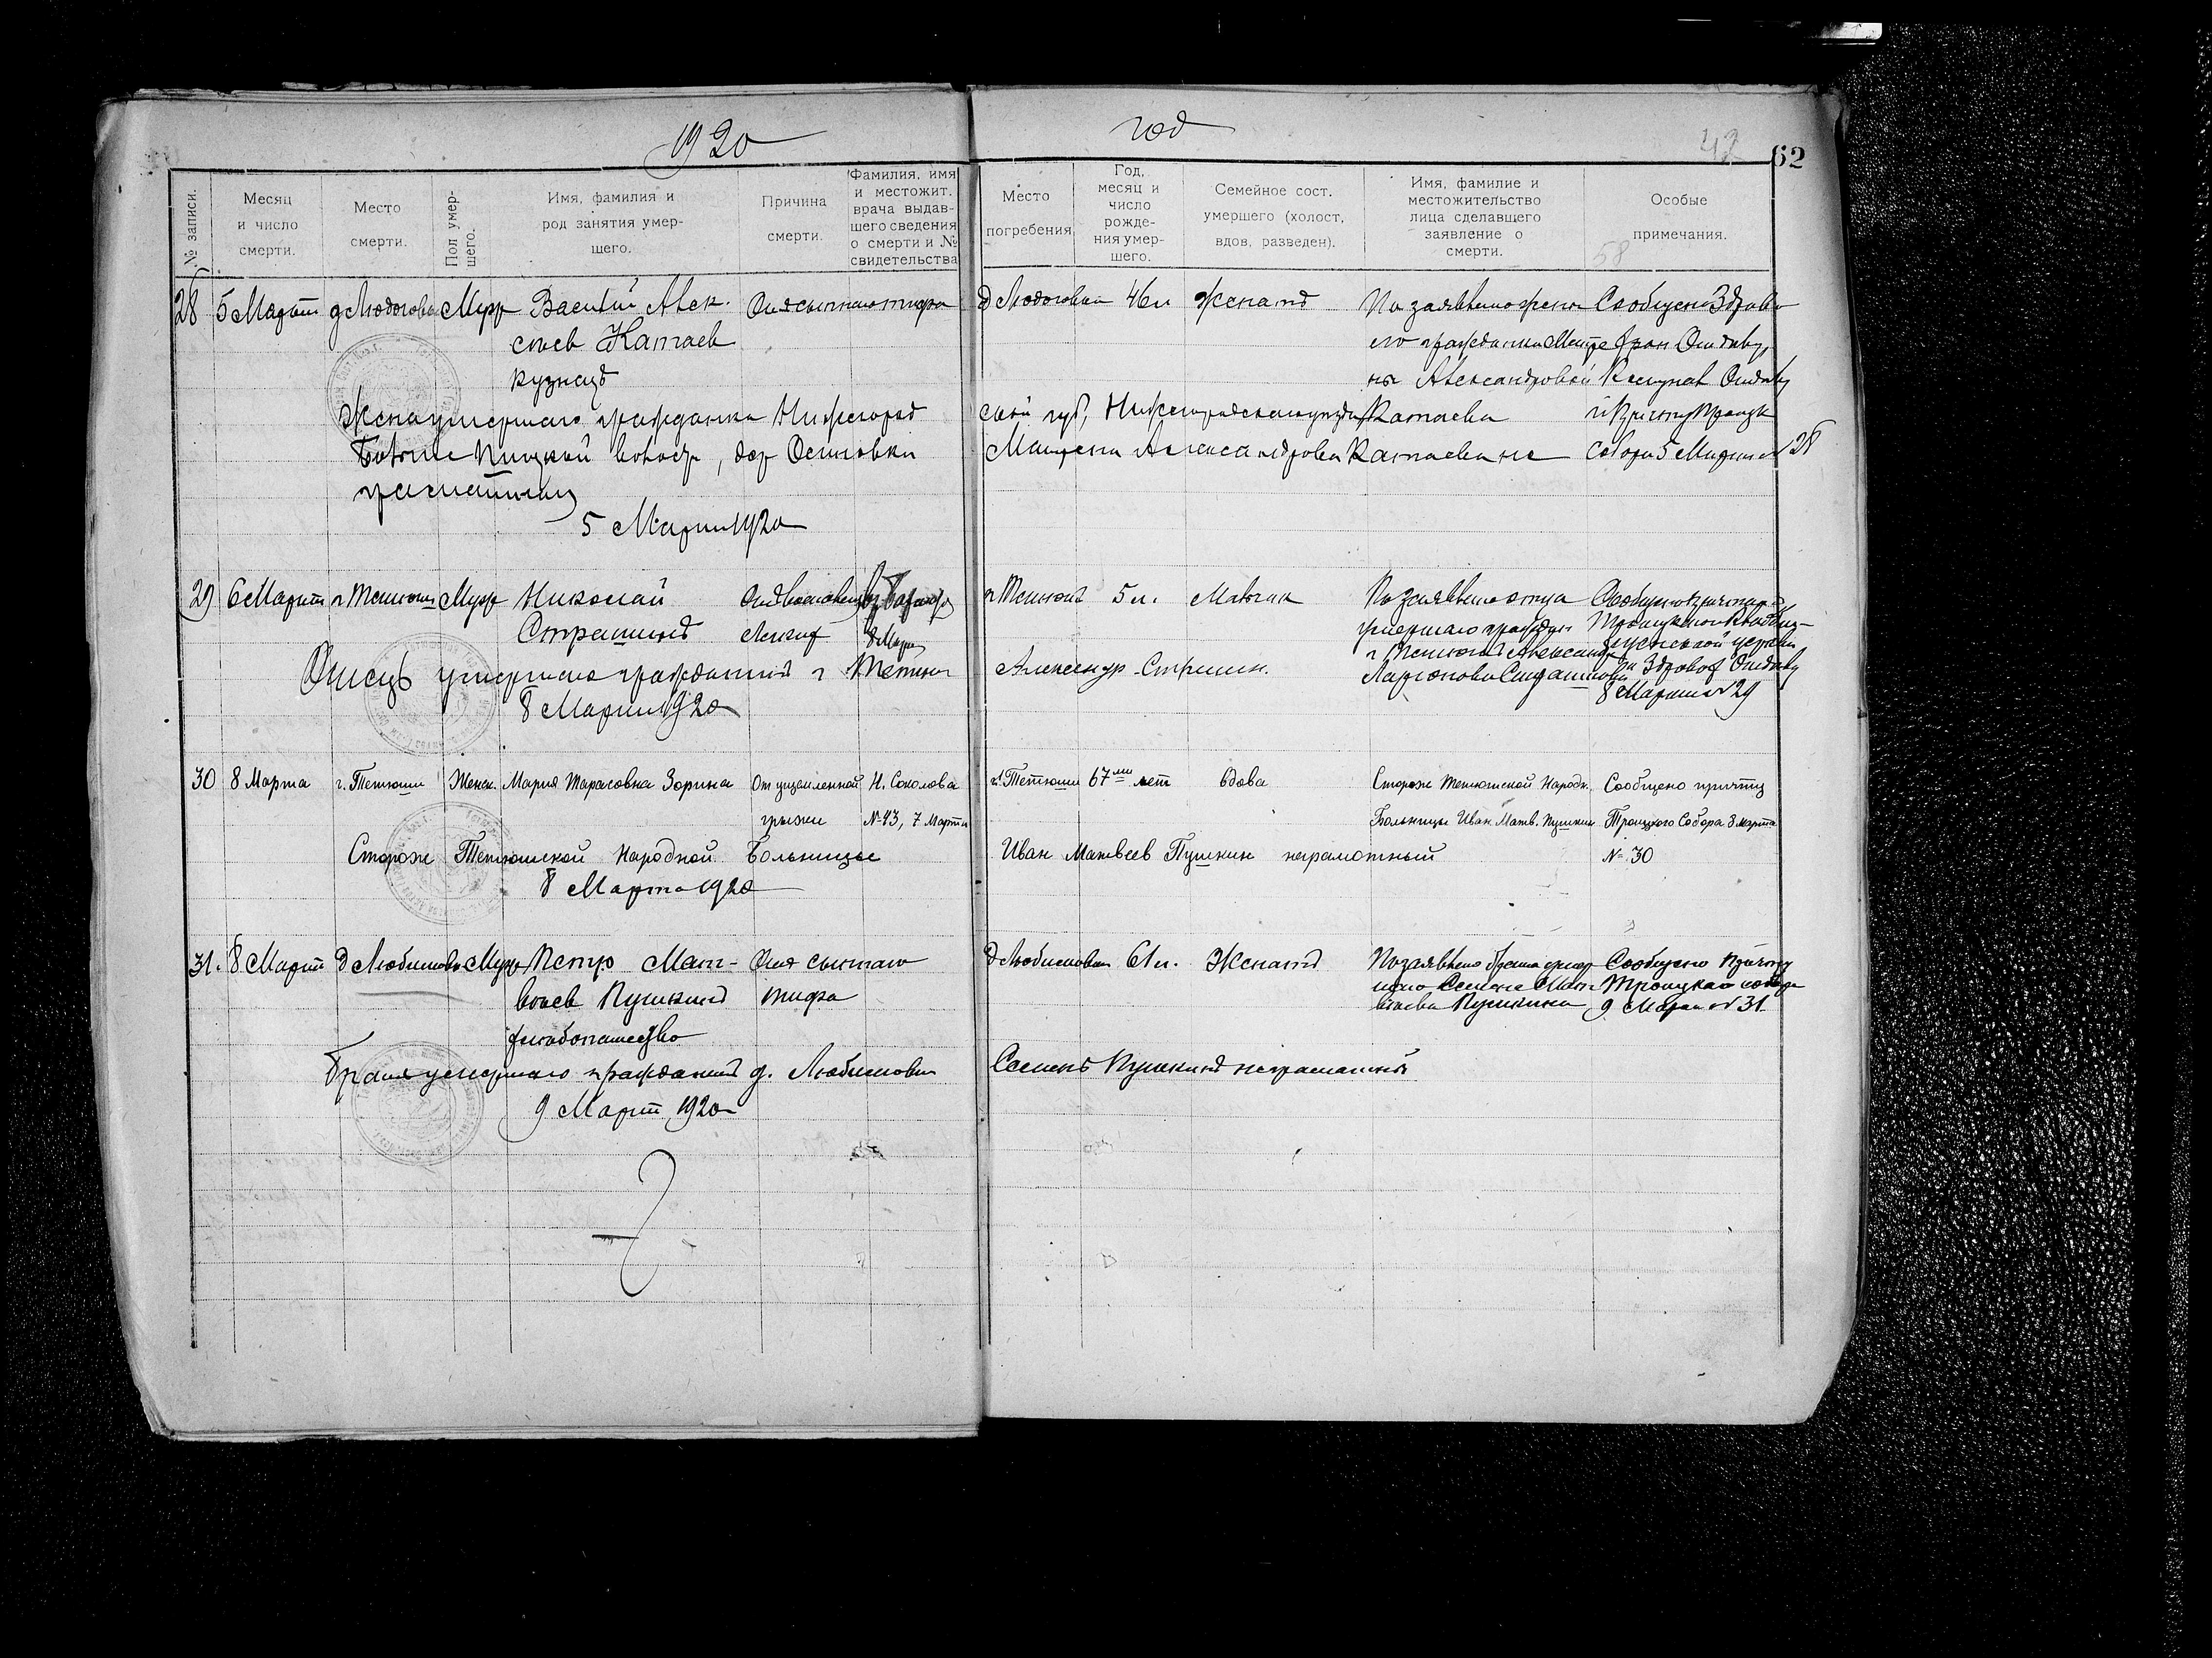 1920 год
42
62
№ записи.
Месяц и число смерти.
Место смерти.
Пол умершего.
Имя, фамилия и род занятия умершего.
Причина смерти.
Фамилия, имя и местожит. врача выдавшего сведения о смерти и № свидетельства
Место погребения
Год, месяц и число рождения умершего.
Семейное сост. умершего (холост, вдов, разведен).
Имя, фамилие и местожительство лица сделавшего заявление о смерти.
Особые примечания.
58
28 5 Марта Муж Василий Алек- От сыпного тифа 46 л женат По заявлению жены Сообщено Здраво
сеев Катаев его гражданки
кузнец Александровой
Жена умершаго гражданка Нижегород ской губ, Нижегородского уезда Катаева
волости, дер Осиновки Александрова Катаева не Собора 5 Марта № 28
грамотная
5 Марта 1920
29 6 Марта г Тетюши Муж Николай От воспаления г Тетюши 5 л. Мальчик По заявлению отца Сообщено причту
Страшнов легких 8 Марта умершаго граждан
г Тетюши Александр
Отец умершаго гражданин г Тетюш Александр Страшн.
Ларионова Страшнова Здравоот Отделу
8 Марта 1920 8 Марта № 29
30 8 Марта г. Тетюши Женск. Мария Тарасовна Зорина От ущемленной Н. Соколова г. Тетюши 67ми лет вдова Сторож Тетюшской Народн. Сообщено причту
грыжи № 43, 7 Марта Больницы Иван Матв. Пушкин Троицкого Собора 8 марта
Сторож Тетюшской Народной Больницы Иван Матвеев Пушкин неграмотный № 30
8 Марта 1920
31. 8 Марта д Любимовка Муж Петр Мат- От сыпного д Любимовка 61 л. Женат По заявлению брата умер Сообщено причту
веев Пушкин тифа шаго Семена Мат- Троицкаго собора
веева Пушкина 9 Марта № 31.
хлебопашество
Брат умершаго гражданин д. Любимовки Семен Пушкин неграмотный
9 Марта 1920